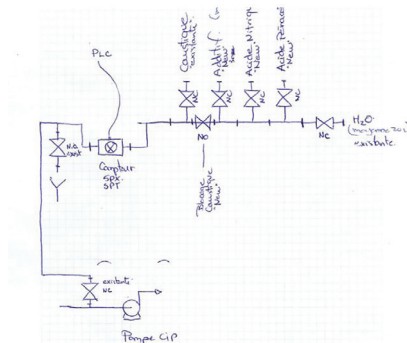 PLC
Caustique
"existante"
Additif
"New"
Acide Nitrique
"New"
Acide Péracé
"New"
NC
NC
NC
NC
NO
NC
H2O
existante
N.O
exist
Compteur
SPX.
SPT
Blocage
Caustique
"New"
existante
NC
Pompe CiP